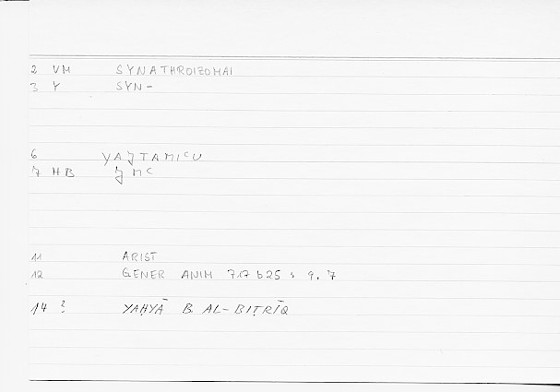 2 VM SYNATHROIZOMAI
3 Y SYN-
6 YAJTAMICU
7 HB J M C
11 ARIST
12 GENER ANIM 717 b25 s 9.7
14 ? YAḤYĀ B AL-BIṬRĪQ